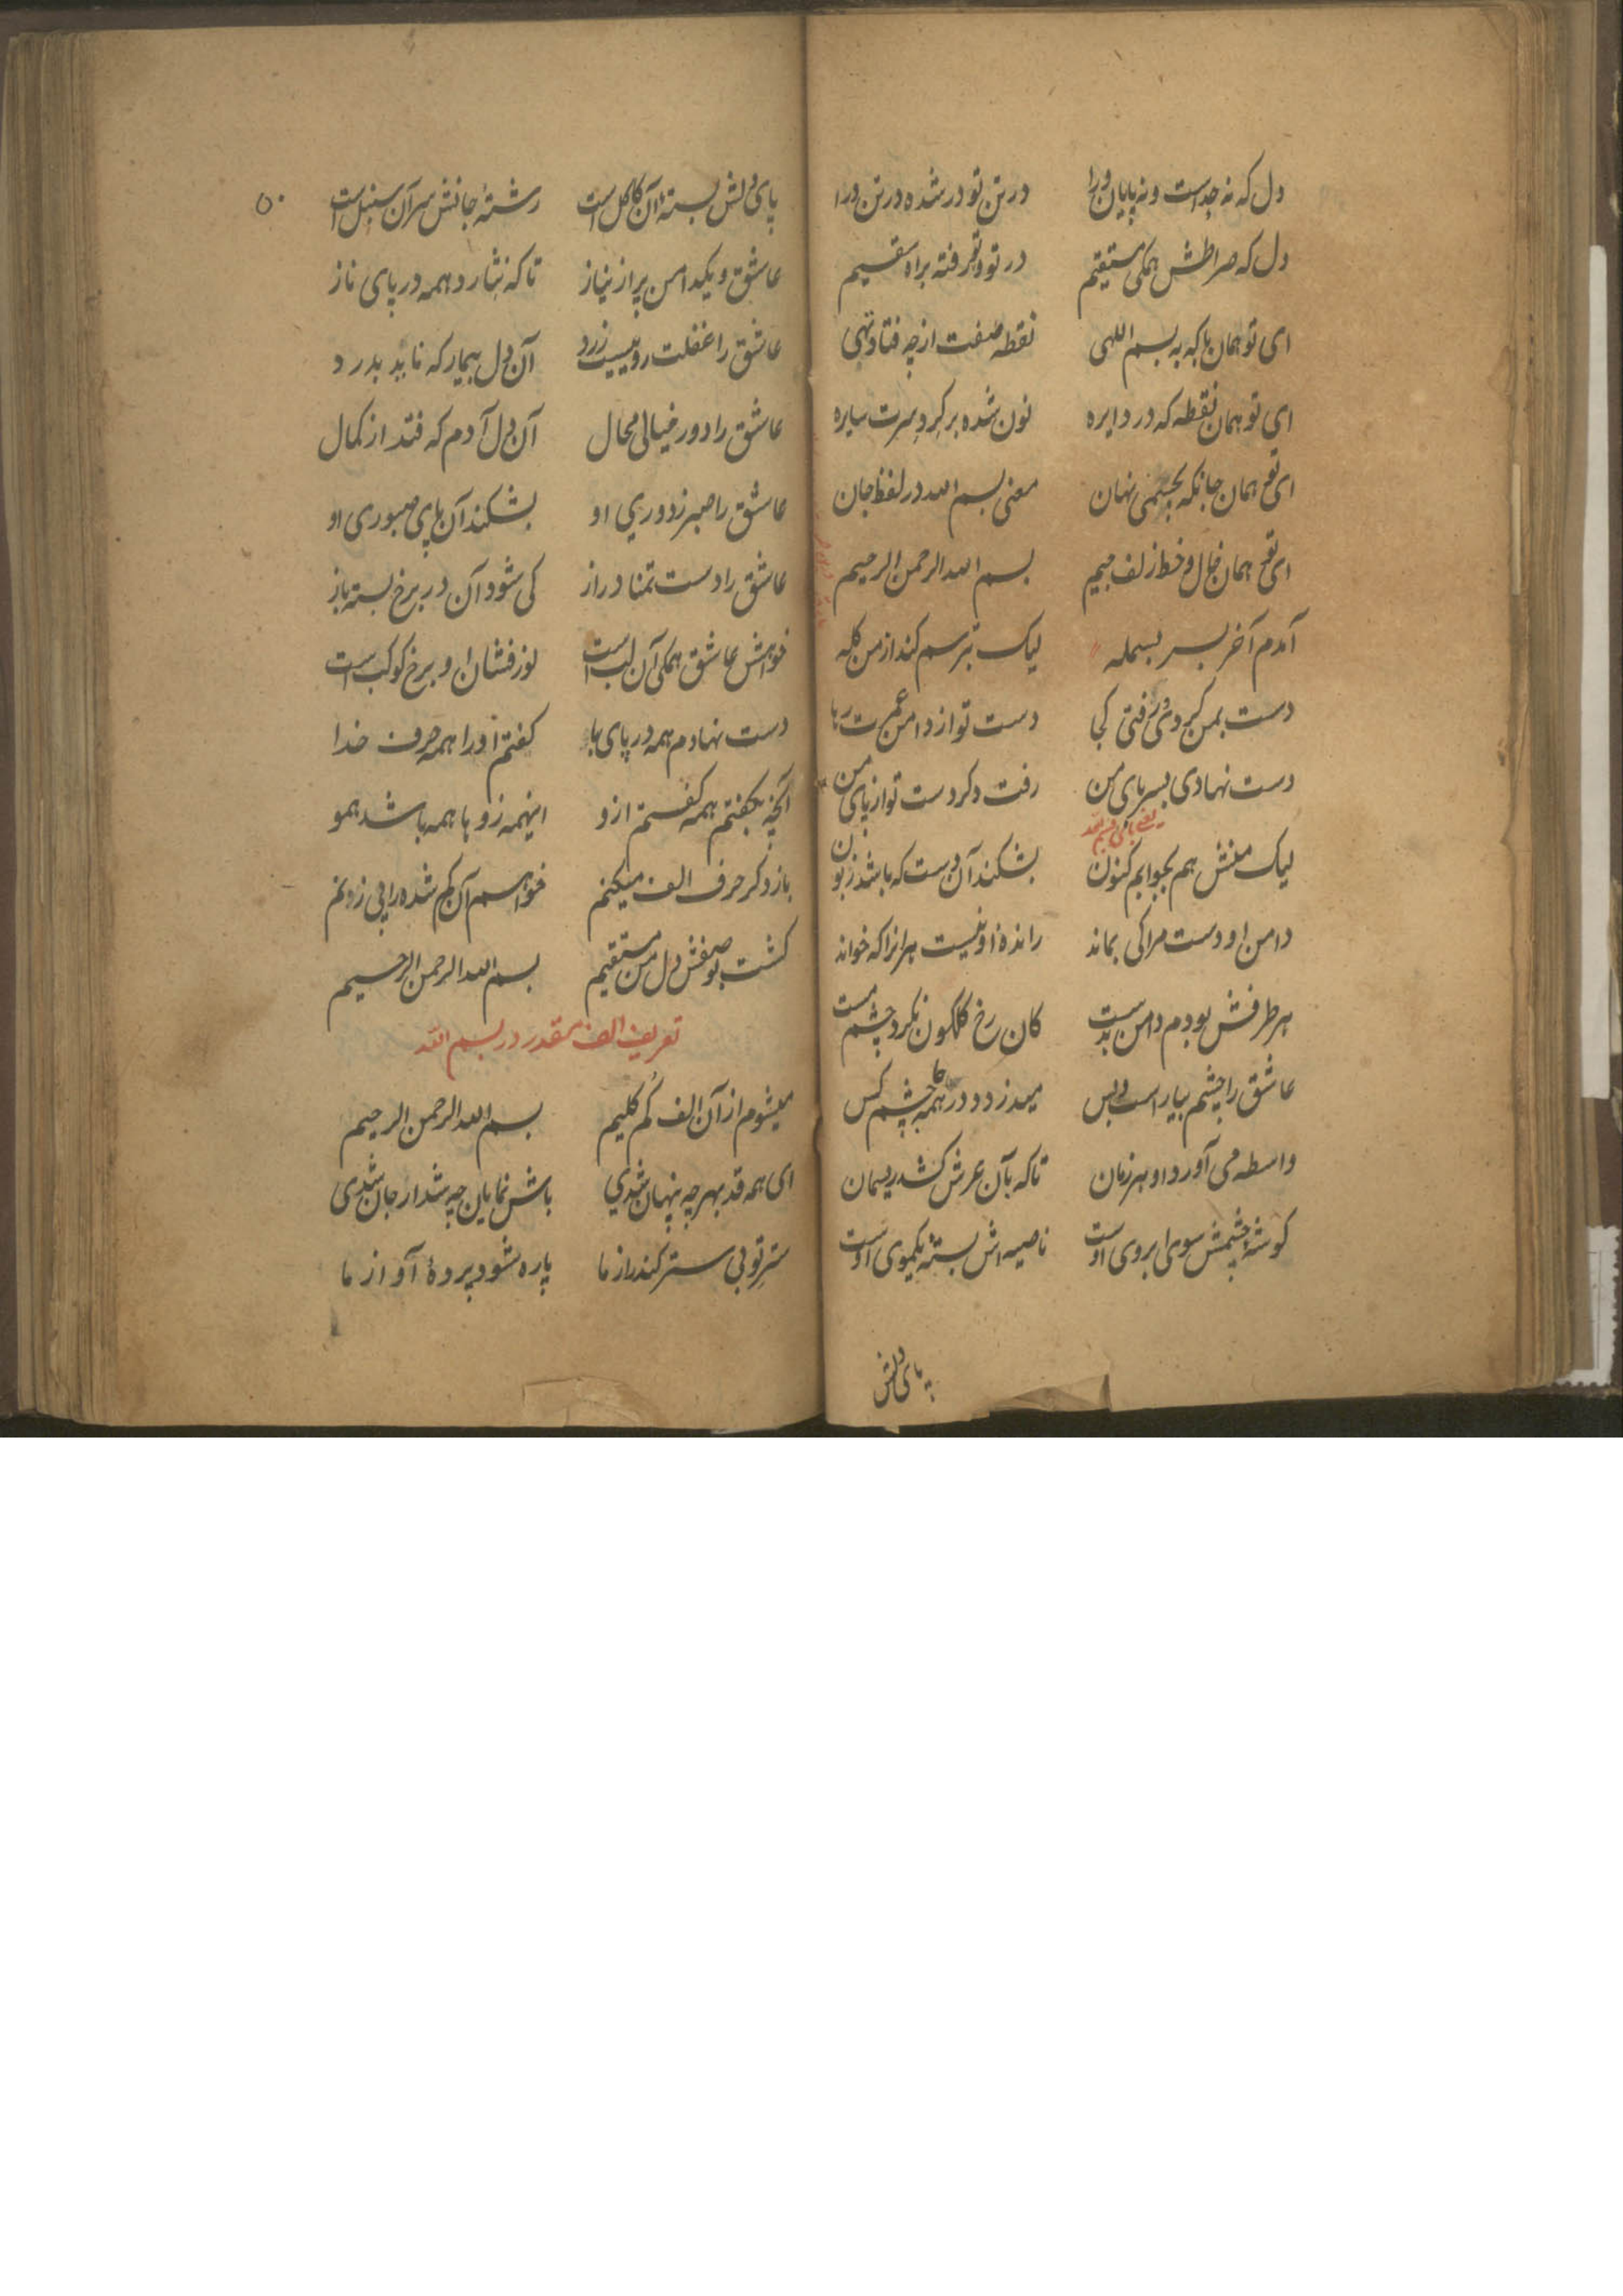 دل که نه جداست و نه پایان ورا در تن تو در شده در تن درا
دل که صراطش همکی مستقیم در تو و تو رفته براه سقیم
ای تو همان با که به بسم اللهی نقطه صفت از چه فتاد تهی
ای تو همان نقطه که در دایره نون شده بر کرد سرت سایره
ای تو همان جانکه بجسمی نهان معنی بسم الله در لفظ جان
ای تو همان خال و خط و زلف جیم بسم الله الرحمن الرحیم
آمدم آخر بسر بسمله لیک ترسم کند از من کله
دست بمن کرد وی رفتی کجا دست تو از دامن عمرت رها
دست نهادی بسر پای من رفت دکر دست تو از پای من
یعنی بای بسم الله
لیک منش هم بجوابم کنون بشکند آن دست که باشد زبون
دامن او دست مرا کی بماند رانده او نیست هر انرا که خواند
هر طرفش بودم دامن بدست کان رخ کلکون نکرد چشم مست
عاشق را چشم بیار است و بس میدزدد در همه جا چشم کس
واسطه می آورد او هر زمان تا که بآن عرش کشد ریسمان
کوشه چشمش سوی ابروی اوست ناصیه اش بسته یکموی اوست
پای دلش
۵۰
پای دلش بسته آن کاکل است رشته جانش سر آن سنبل است
عاشق و یکدامن پر از نیاز تا که نثارد همه در پای ناز
عاشق را غفلت رو نیست زرد آن دل بیمار که ناید بدرد
عاشق را دور خیالی محال آن دل آدم که فتد از کمال
عاشق را صبر ز دوری او بشکند آن پای صبوری او
عاشق را دست تمنا دراز کی شود آن در برخ بسته باز
خواهش عاشق همکی آن لب است نور فشان او برخ کوکب است
دست نهادم همه در پای با کفتم او را همه حرف خدا
آنچه بکفتم همه کفتم ازو اینهمه زو با همه باشد همو
باز دکر حرف الف میکنم خواهم آن کم شده را پی زدنم
کشت بوصفش دل من مستقیم بسم الله الرحمن الرحیم
تعریف الف مقدر در بسم الله
میشوم از آن الف کم کلیم بسم الله الرحمن الرحیم
ای همه قد بهر چه پنهان شدی باش نمایان چه شد ار جان شدی
ستر تو بی ستر کند راز ما پاره شود پرده آواز ما